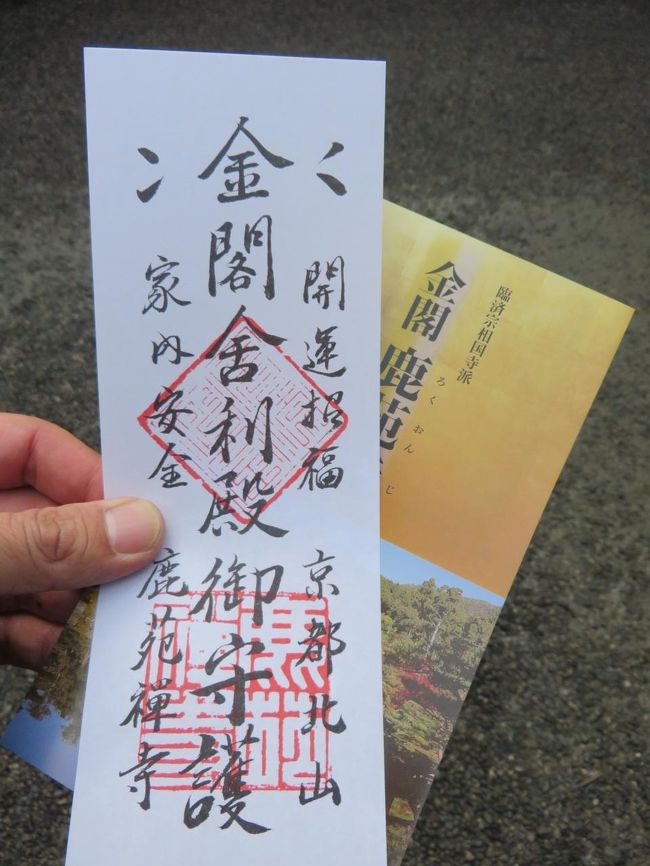 開運招福 京都北山
金閣舎利殿御守護
家内安全 鹿苑禅寺
臨済宗相国寺派
金閣 鹿苑
ろくおん
じ